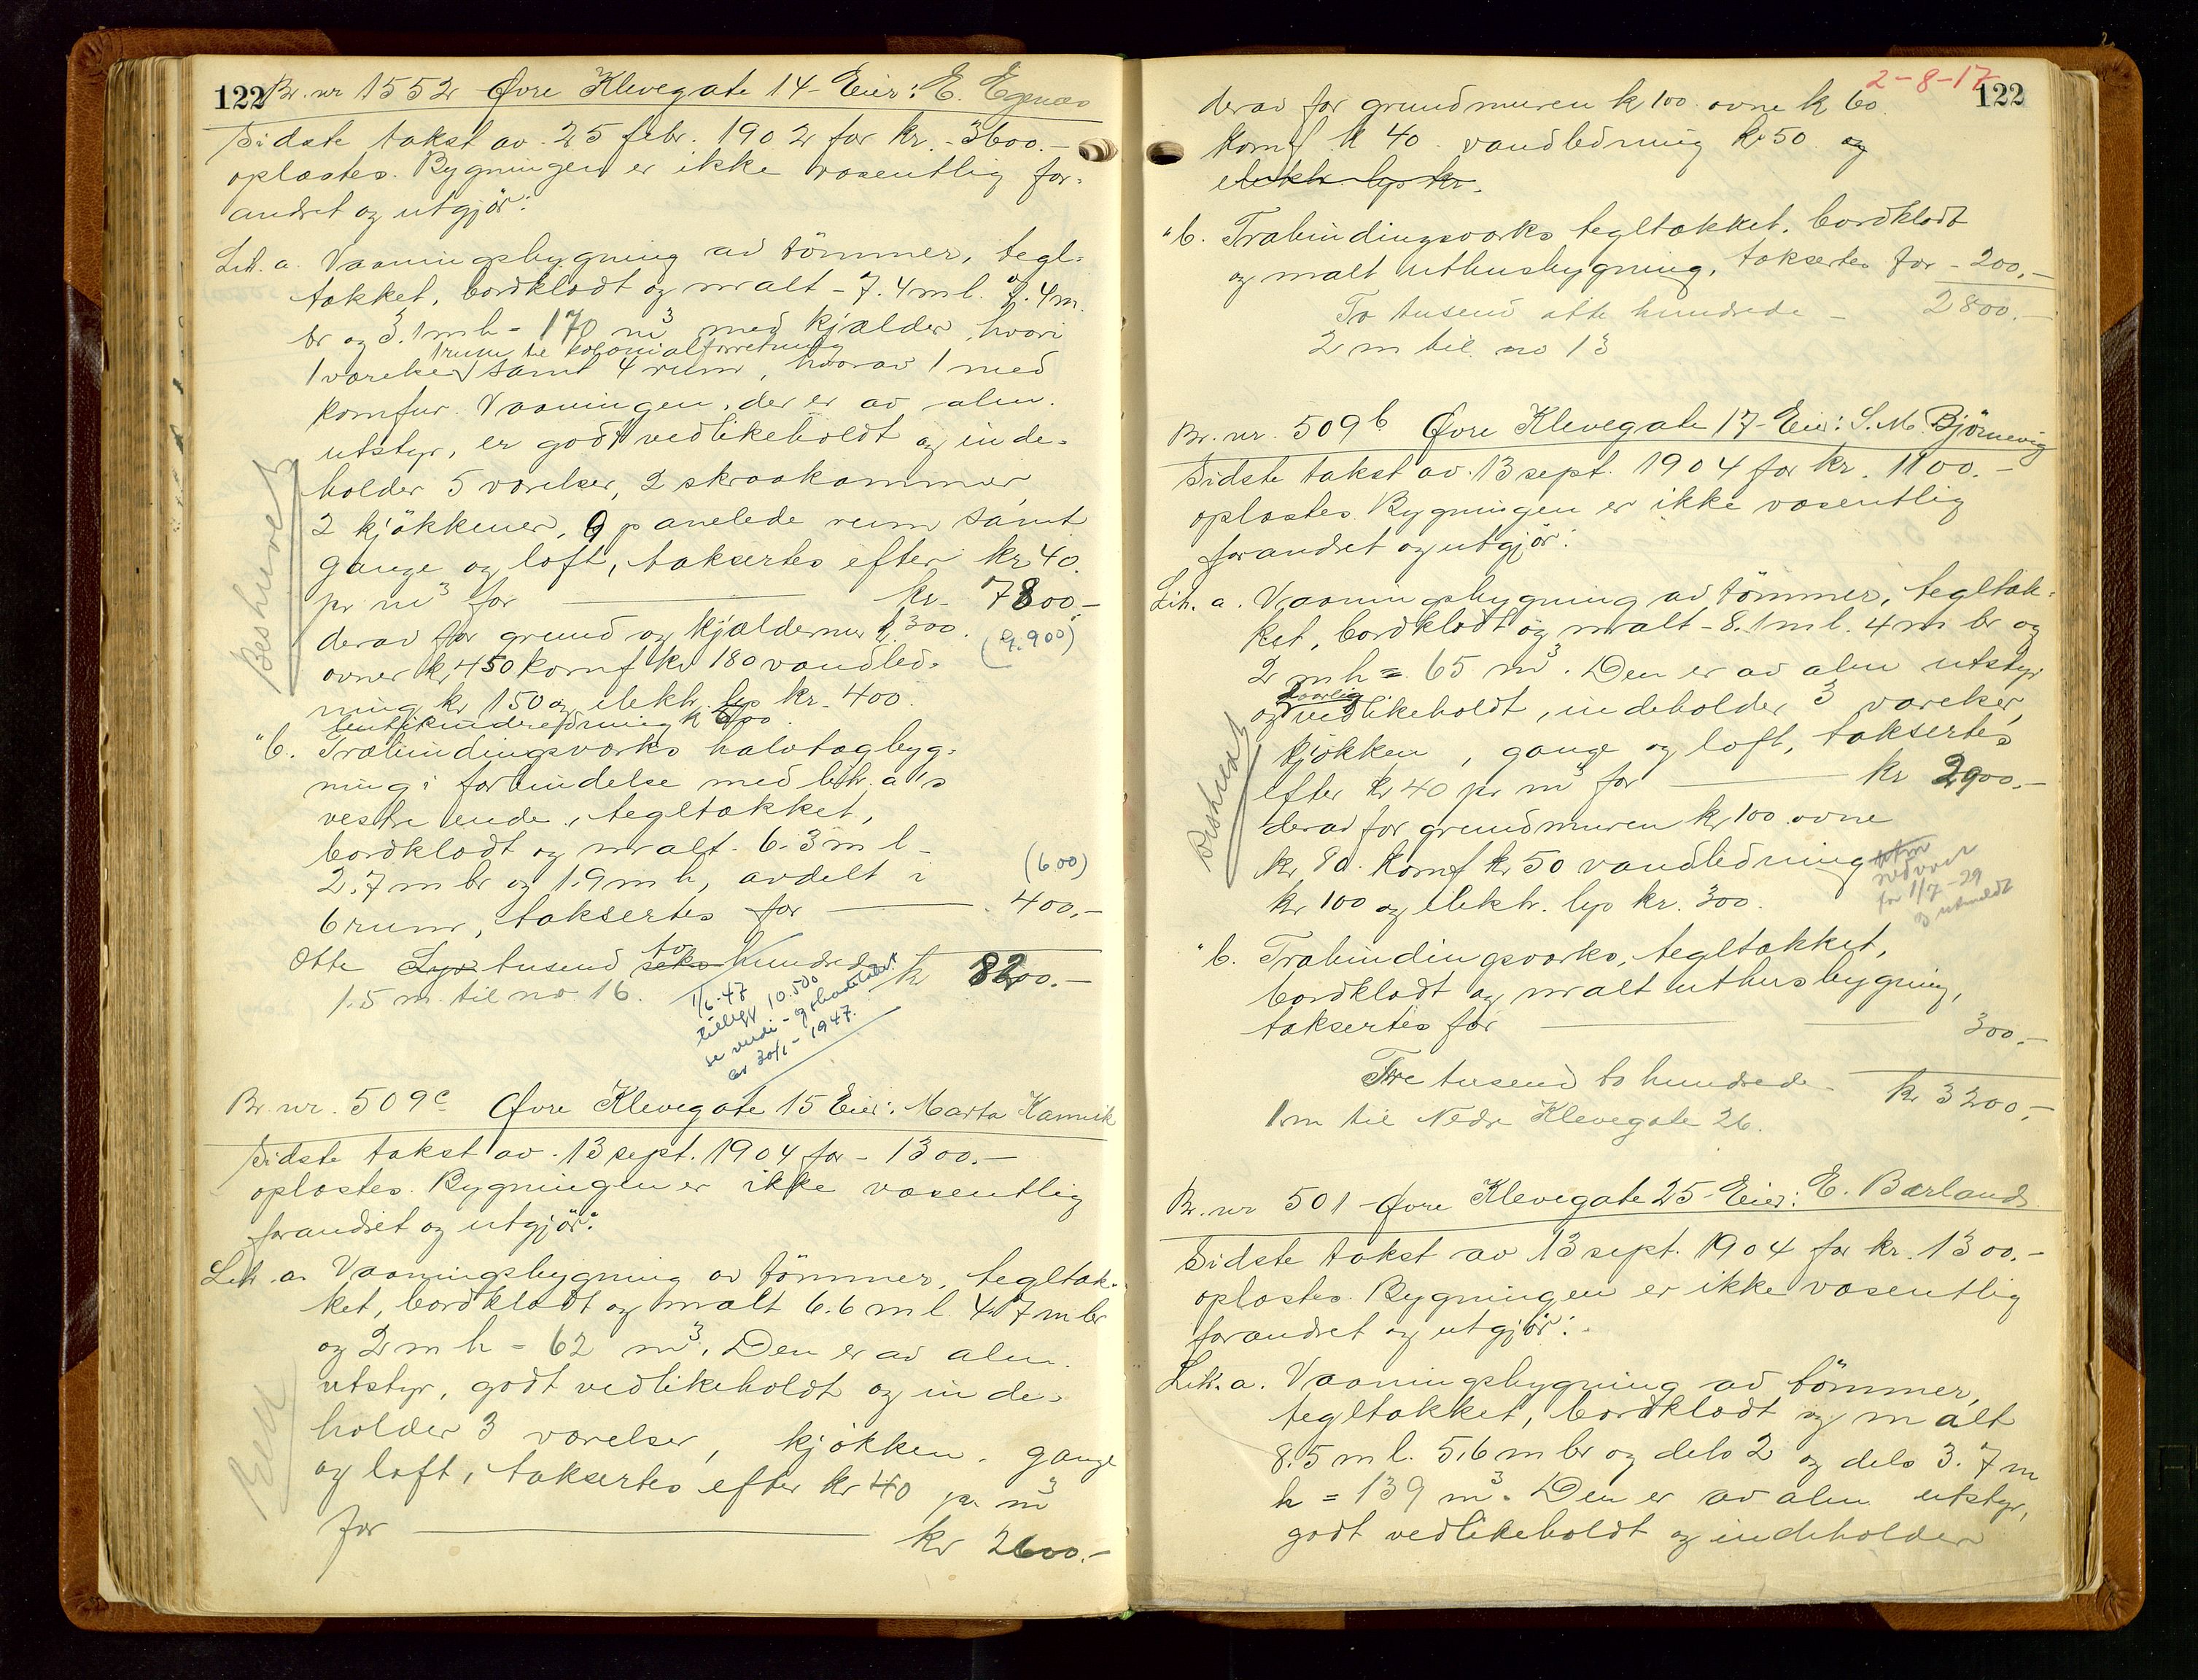 122 Br. nr 1552 Øvre Klevegate 14 - Eier: E. Egenæs
Sidste takst av 25 febr. 1902 for kr. 3600.-
oplæstes. Bygningen er ikke væsentlig for-
andret og utgjör:
Litr. a. Vaaningsbygning av tömmer, tegl-
tækket, bordklædt og malt - 7.4 m l. 7.4 m
br og 3.1 m h = 170 m³ med kjælder, hvori
1 rum til kolonialforretning
1 værelse samt 4 rum, hvorav 1 med
komfur. Vaaningen, der er av alm.
utstyr, er godt vedlikeholdt og inde-
holder 5 værelser, 2 skraakammer,
2 kjökkener, 9 panelede rum samt
gange og loft, taksertes efter kr 40.
pr m³ for kr. 7800.-
derav for grund og kjældermur k 300. (9.900)
ovner kr 450 komf kr 180 vandled-
ning kr 150 og elektr. lys kr. 400.
butikindredning k 600.
Beskrevet
" b. Træbindingsværks halvtagbyg-
ning i forbindelse med litr. a's
vestre ende, tegltækket,
bordklædt og malt. 6.3 m l -
2.7 m br og 1.9 m h, avdelt i (600)
6 rum, taksertes for 400.-
Otte Syv tusend to seks hundrede kr 8200.-
1.5 m. til no 16.
1/6-47
tillegg 10.500
30/1-1947.
Br. nr. 509c Øvre Klevegate 15 Eier: Marta Kannik
Sidste takst av 13 sept. 1904 for - 1300.-
oplæstes. Bygningen er ikke væsentlig
forandret og utgjör:
Litr. a. Vaaningsbygning av tömmer, tegltæk-
ket, bordklædt og malt 6.6 m l. 4.7 m br
og 2 m h = 62 m³. Den er av alm.
utstyr, godt vedlikeholdt og inde-
holder 3 værelser, kjökken, gange
og loft, taksertes efter kr 40 pr m³
for kr 2600.-
2-8-17 122
derav for grundmuren k 100 ovne k 60.
komf k 40 vandledning kr 50 og
elektr. lys kr.
" b. Træbindingsværks tegltækket, bordklædt
og malt uthusbygning, taksertes for - 200.-
To tusend otte hundrede - 2800.-
2 m til no 13
Br. nr. 509b Øvre Klevegate 17 - Eier: S. M. Björnevig
Sidste takst av 13 sept. 1904 for kr. 1100.-
oplæstes. Bygningen er ikke væsentlig
forandret og utgjör:
Litr. a. Vaaningsbygning av tömmer, tegltæk-
ket, bordklædt og malt - 8.1 m l. 4 m br og
2 m h = 65 m³. Den er av alm utstyr
daarlig
og vedlikeholdt, indeholder 3 værelser,
kjökken, gange og loft, taksertes
efter kr 40 pr m³ for kr 2900.-
derav for grundmuren kr 100 ovne
kr 80. komf kr 50 vandledning
kr 100 og elektr. lys kr. 300.
Beskrevet
1/7-29
utmeldt
" b. Træbindingsværks, tegltækket,
bordklædt og malt uthusbygning,
taksertes for 300.-
Tre tusend to hundrede - kr 3200.-
1 m til Nedre Klevegate 26.
Br. nr 501 - Øvre Klevegate 25 - Eier: E. Bærland
Sidste takst av 13 sept. 1904 for kr. 1300.-
oplæstes. Bygningen er ikke væsentlig
forandret og utgjör:
Litr. a. Vaaningsbygning av tömmer,
tegltækket, bordklædt og malt
8.5 m l. 5.6 m br og dels 2 og dels 3.7 m
h = 139 m³. Den er av alm utstyr,
godt vedlikeholdt og indeholder